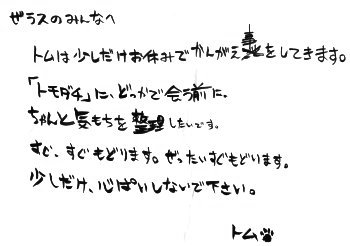 ぜラスのみんなへ
トムは少しだけお休みでかんがえ事をしてきます。
「トモダチ」に、どっかで会う前に、
ちゃんと気もちを整理したいです。
すぐ、すぐもどります。ぜったいすぐもどります。
少しだけ、心ぱいしないで下さい。
トム